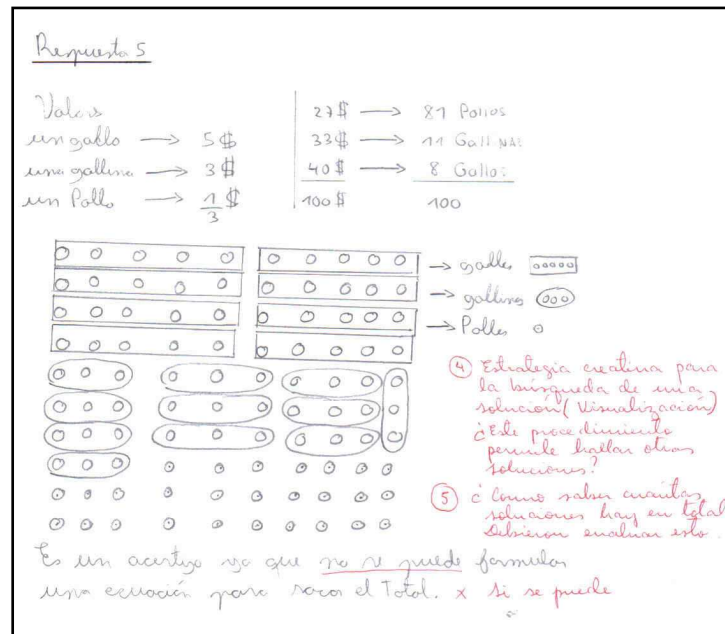 Respuesta 5
Valores
un gallo → 5 $
una gallina → 3 $
un Pollo → 1/3 $
27 $ → 81 Pollos
33 $ → 11 GallINAS
40 $ → 8 Gallos
100 $ 100
→ gallos
→ gallinas
→ Pollos
④ Estrategia creativa para
la búsqueda de una
solución (Visualización)
¿Este procedimiento
permite hallar otras
soluciones?
⑤ ¿Como saber cuántas
soluciones hay en total
Debieron evaluar esto.
Es un acertijo ya que no se puede formular
una ecuación para sacar el Total. x Si se puede